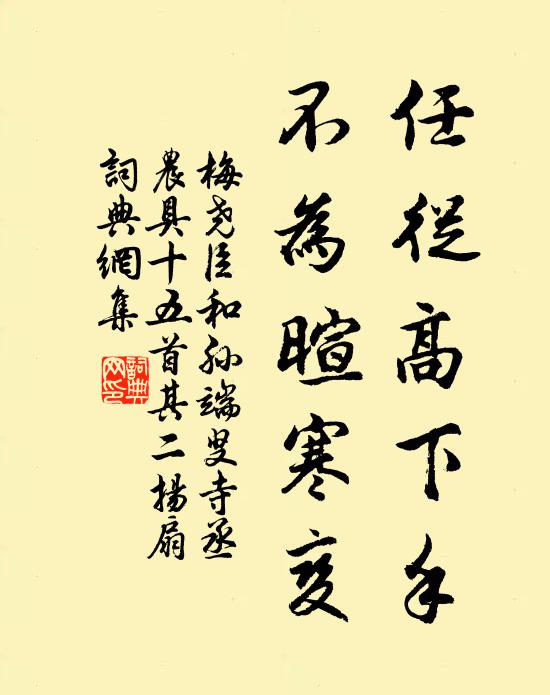 任從高下手
不為暄寒變
梅堯臣和孫端叟寺丞
農具十五首其二揚扇
詞典網集
詞典
网印